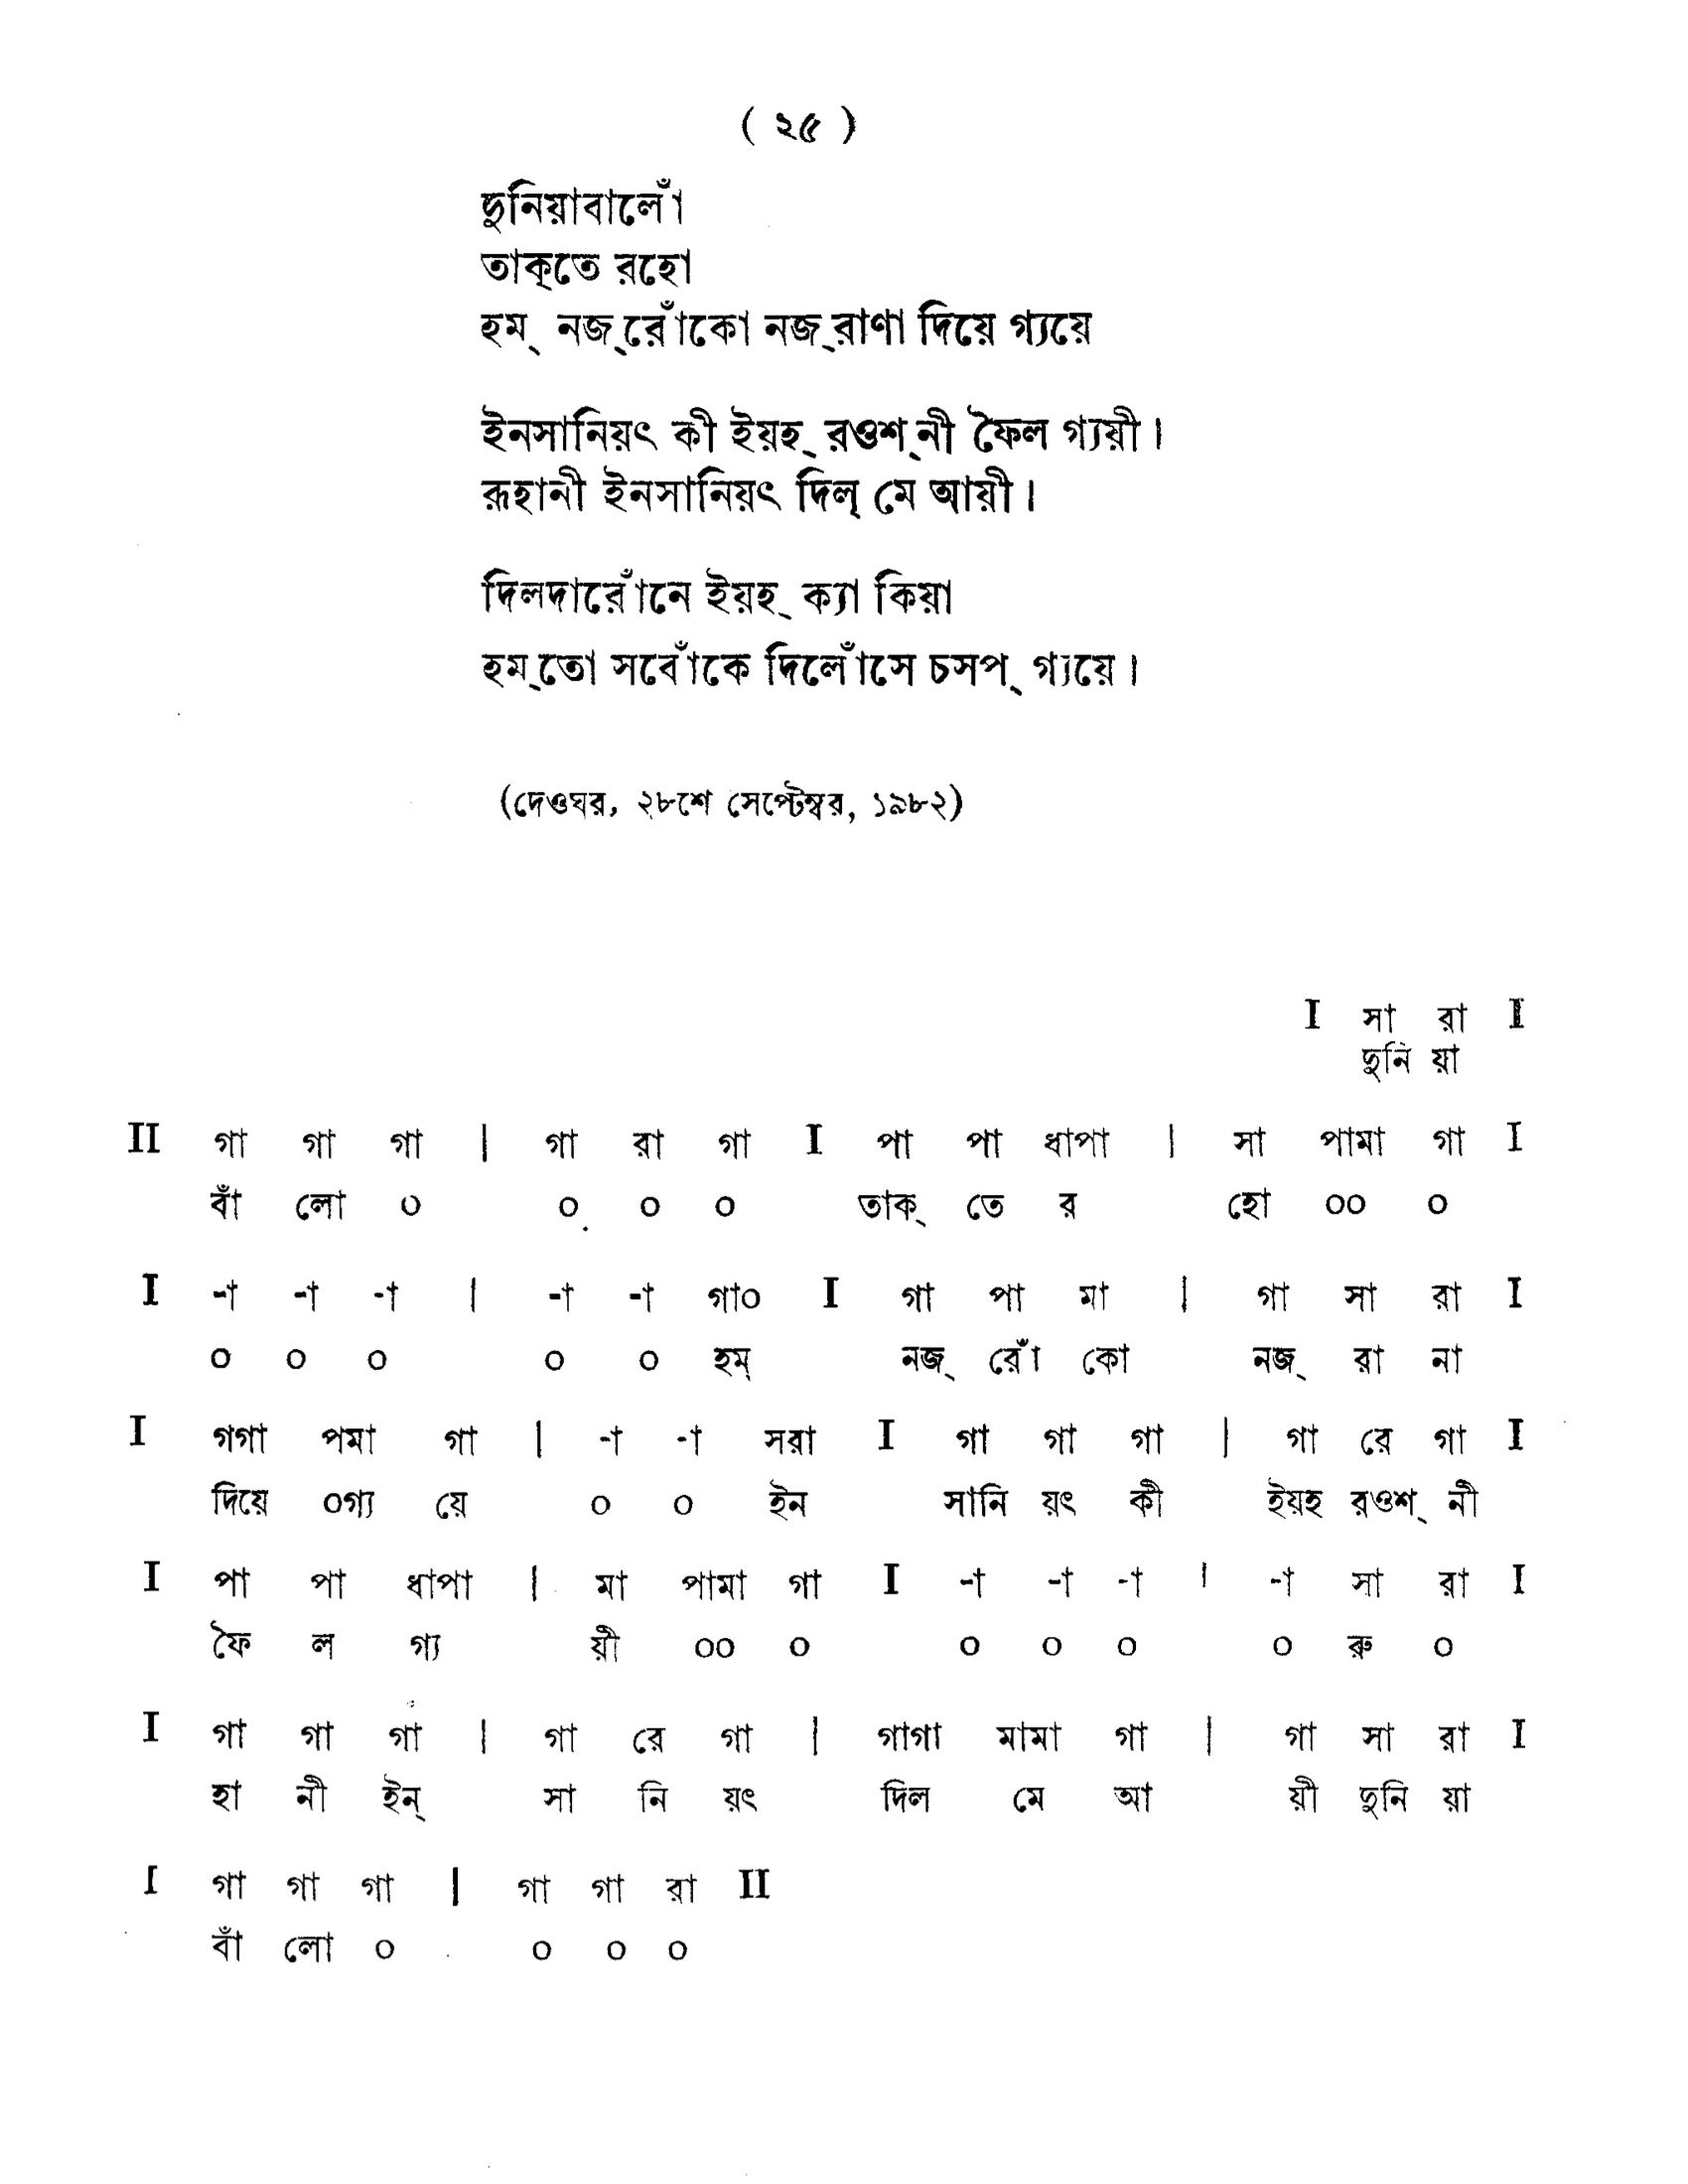 ( ২৫ )
দুনিয়াবালোঁ
তাক্‌তে রহো
হম্‌ নজ্‌রোঁকো নজ্‌রাণা দিয়ে গ্যয়ে
ইনসানিয়ৎ কী ইয়হ্‌ রওশ্‌নী ফৈল গ্যয়ী।
রূহানী ইনসানিয়ৎ দিল্‌ মে আয়ী।
দিলদারোঁনে ইয়হ্‌ ক্যা কিয়া
হম্‌তো সবোঁকে দিলোঁসে চসপ্‌ গ্যয়ে।
(দেওঘর, ২৮শে সেপ্টেম্বর, ১৯৮২)
I সা রা I
দুনি য়া
II গা গা গা | গা রা গা I পা পা ধাপা | সা পামা গা I
বাঁ লো ০ ০ ০ ০ তাক্‌ তে র হো ০০ ০
I -া -া -া | -া -া গা০ I গা পা মা | গা সা রা I
০ ০ ০ ০ ০ হম্‌ নজ্‌ রোঁ কো নজ্‌ রা না
I গগা পমা গা | -া -া সরা I গা গা গা | গা রে গা I
দিয়ে ০গ্য য়ে ০ ০ ইন সানি য়ৎ কী ইয়হ রওশ্‌ নী
I পা পা ধাপা | মা পামা গা I -া -া -া | -া সা রা I
ফৈ ল গ্য য়ী ০০ ০ ০ ০ ০ ০ রু ০
I গা গা গা | গা রে গা | গাগা মামা গা | গা সা রা I
হা নী ইন্‌ সা নি য়ৎ দিল মে আ য়ী দুনি য়া
I গা গা গা | গা গা রা II
বাঁ লো ০ ০ ০ ০